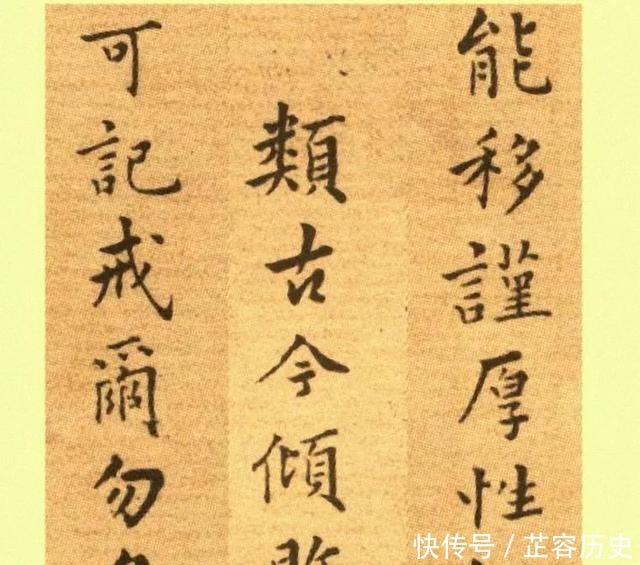 能移謹厚性
類古今傾敗
可記戒爾勿
快传号 / 芷容历史